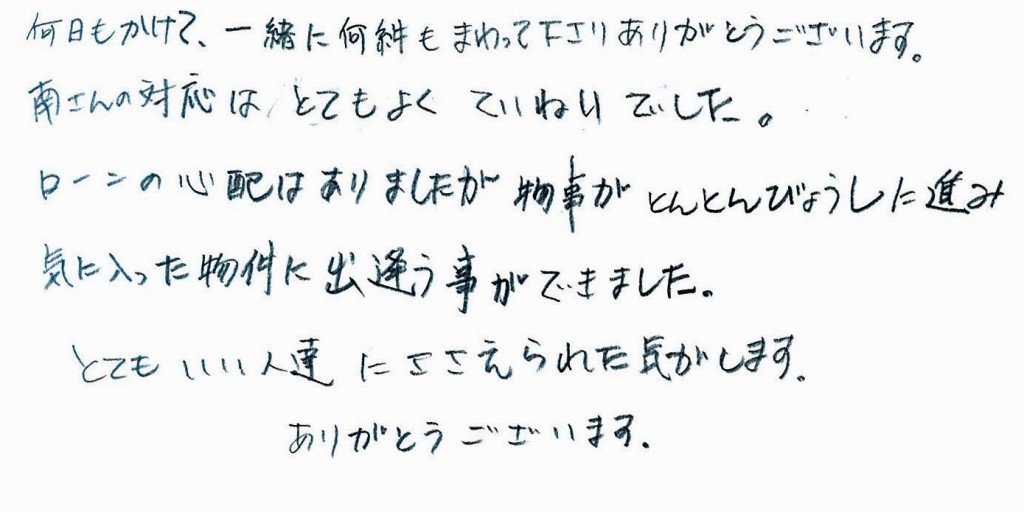 何日もかけて、一緒に何件もまわって下さりありがとうございます。
南さんの対応は、とてもよく ていねいでした。
ローンの心配はありましたが 物事が とんとんびょうしに進み
気に入った物件に出逢う事ができました。
とてもいい人達にささえられた気がします。
ありがとうございます.